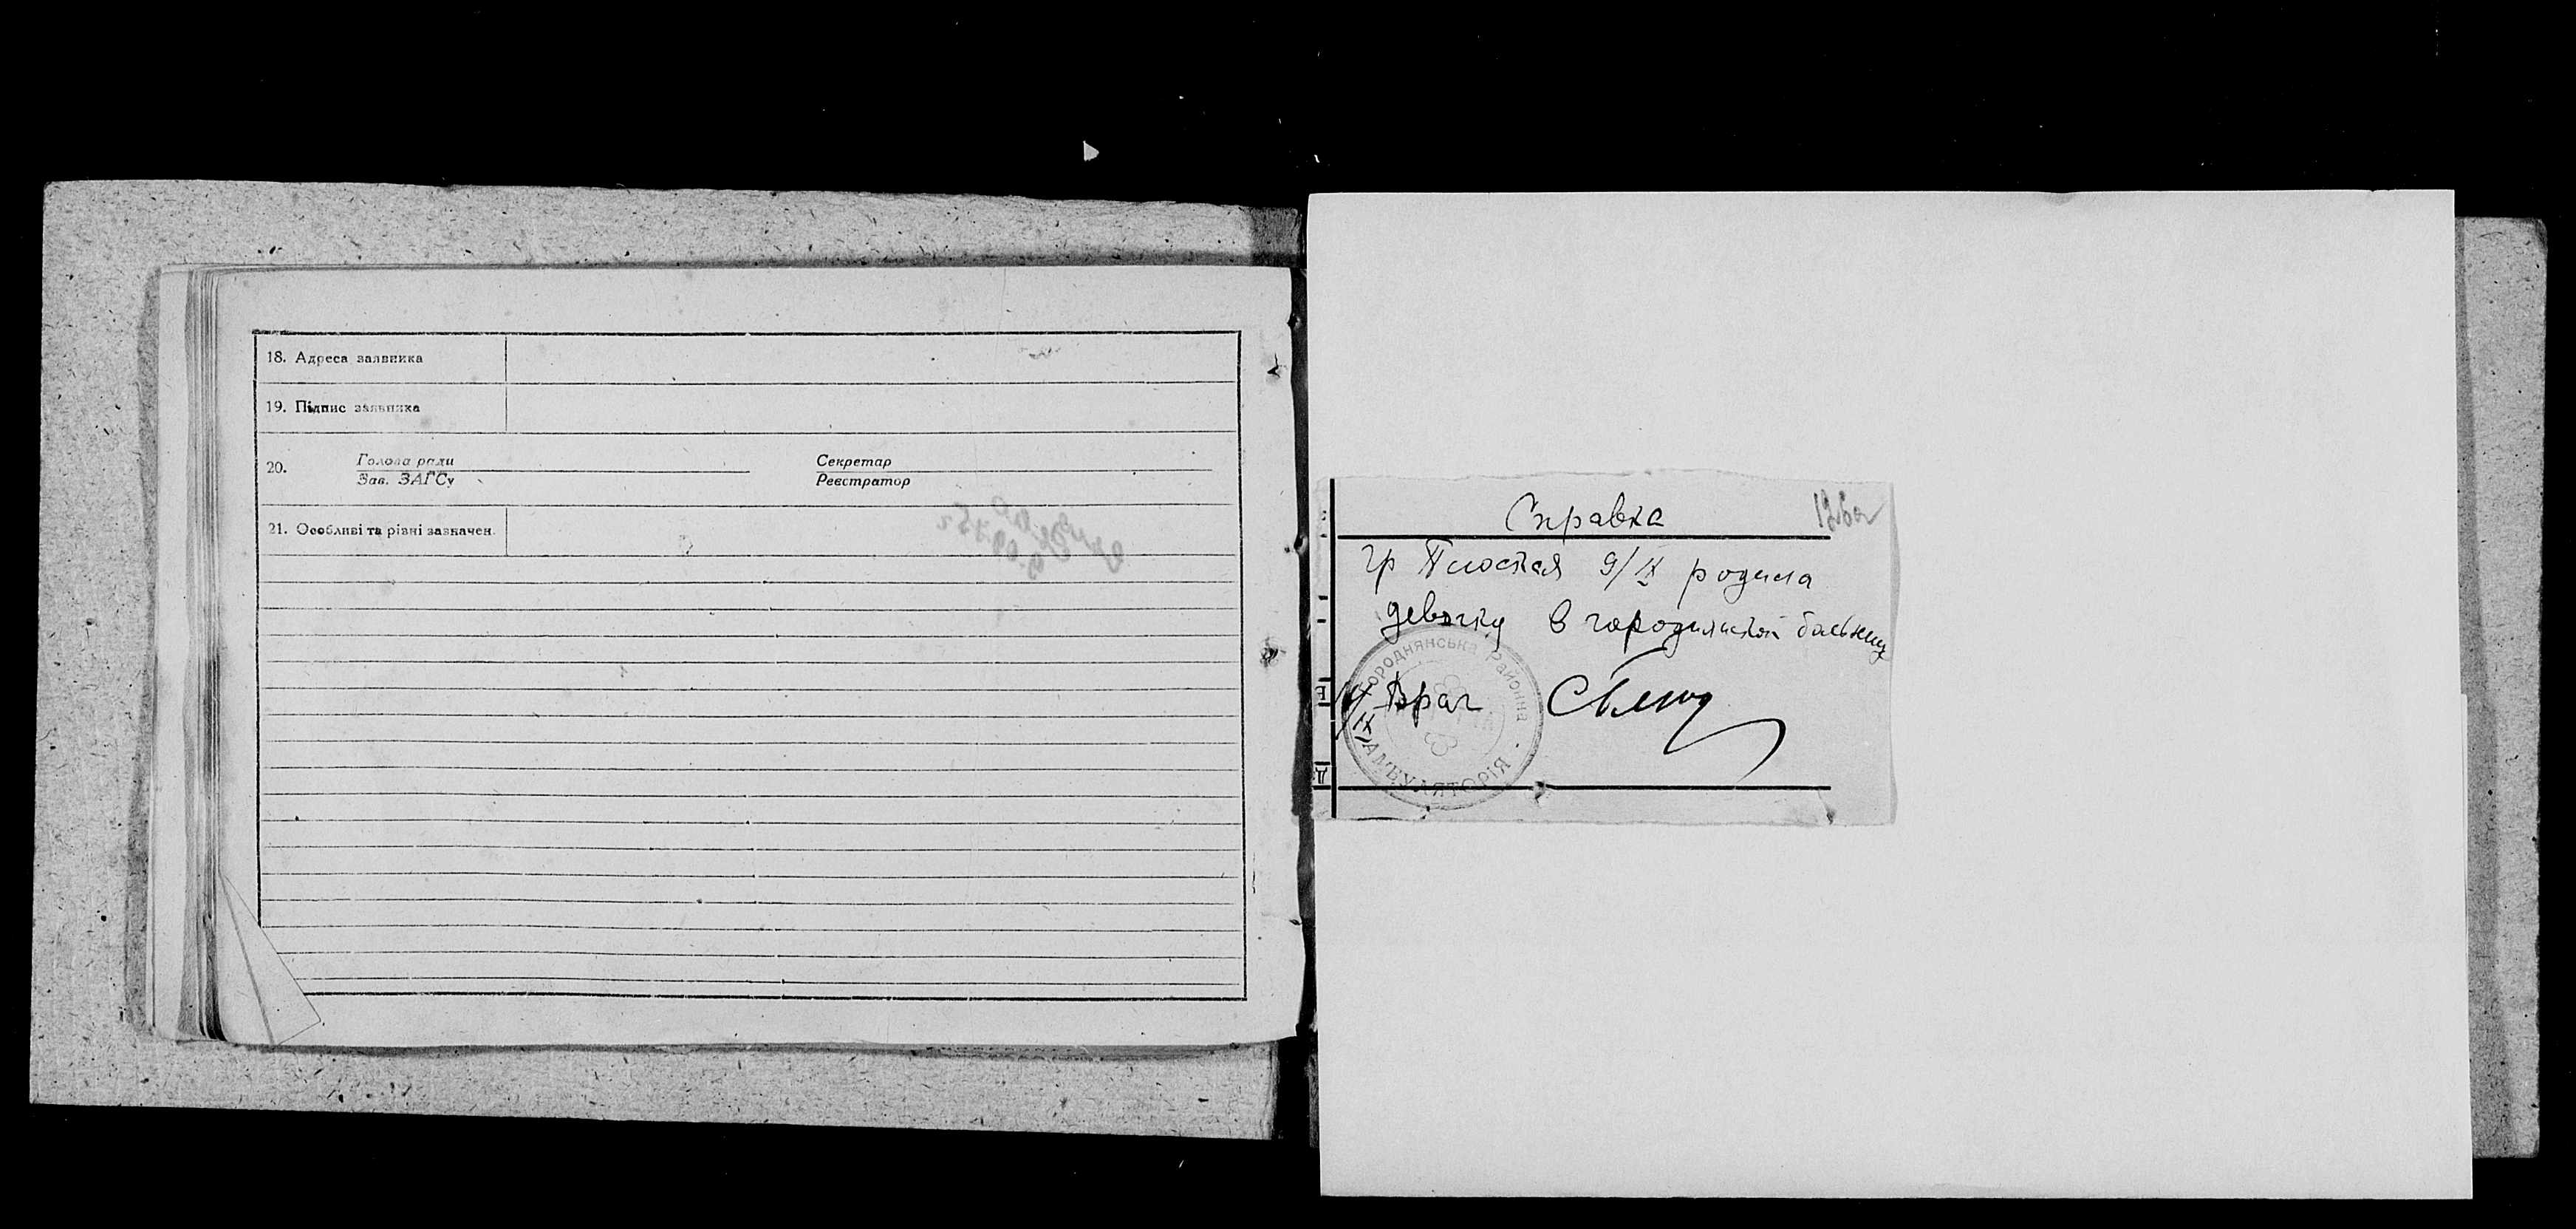 18. Адреса заявника
19. Підпис заявника
20.
Голова ради
Зав. ЗАГСу
Секретар
Реєстратор
21. Особливі та різні зазначен.
Справка
126а
гр 9/IX родила
девочку в городнянской
Врач
Городнянська Районна
АМБУЛЯТОРІЯ